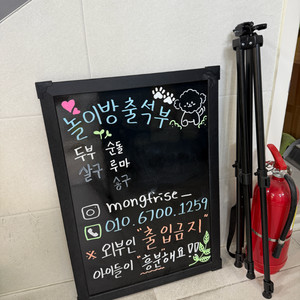 놀이방 출석부
두부 순돌
살구 루마
송구
mongfrise_
010.6700.1259
× 외부인 "출입금지"
아이들이 "흥분"해요